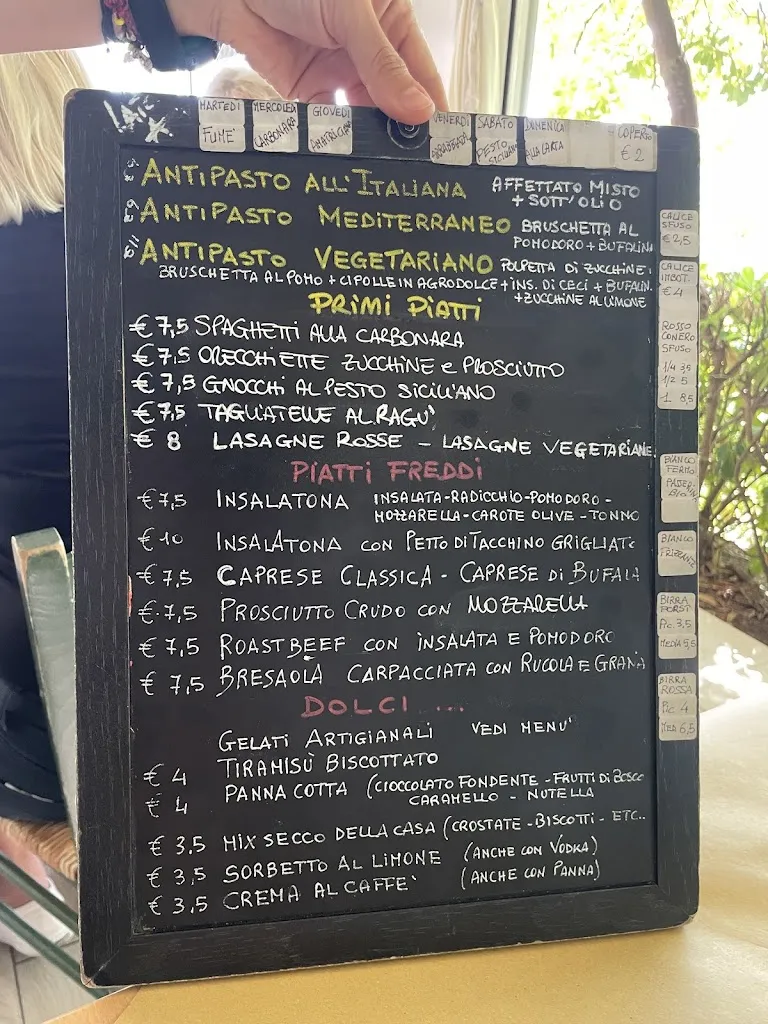 MARTEDI FUMÈ
MERCOLEDI CARBONARA
GIOVEDI AMATRICIANA
VENERDI ARRABBIATA
SABATO PESTO SICILIANO
DOMENICA ALLA CARTA
COPERTO € 2
ANTIPASTO ALL'ITALIANA AFFETTATO MISTO
+ SOTT'OLIO
€9 ANTIPASTO MEDITERRANEO BRUSCHETTA AL
POMODORO + BUFALINA
€11 ANTIPASTO VEGETARIANO POLPETTA DI ZUCCHINE.
BRUSCHETTA AL POMO + CIPOLLE IN AGRODOLCE + INS. DI CECI + BUFALIN.
+ ZUCCHINE AL LIMONE
PRIMI PIATTI
€ 7,5 SPAGHETTI ALLA CARBONARA
€ 7,5 ORECCHIETTE ZUCCHINE e PROSCIUTTO
€ 7,5 GNOCCHI AL PESTO SICILIANO
€ 7,5 TAGLIATELLE AL RAGU'
€ 8 LASAGNE ROSSE - LASAGNE VEGETARIANE
PIATTI FREDDI
€ 7,5 INSALATONA INSALATA-RADICCHIO-POMODORO-
MOZZARELLA-CAROTE OLIVE-TONNO
€ 10 INSALATONA CON PETTO DI TACCHINO GRIGLIATO
€ 7,5 CAPRESE CLASSICA - CAPRESE DI BUFALA
€ 7,5 PROSCIUTTO CRUDO CON MOZZARELLA
€ 7,5 ROASTBEEF CON INSALATA E POMODORO
€ 7,5 BRESAOLA CARPACCIATA CON RUCOLA E GRANA
DOLCI ...
GELATI ARTIGIANALI VEDI MENU'
€ 4 TIRAMISÙ BISCOTTATO
€ 4 PANNA COTTA (CIOCCOLATO FONDENTE - FRUTTI DI BOSCO
CARAMELLO - NUTELLA
€ 3,5 MIX SECCO DELLA CASA (CROSTATE - BISCOTTI - ETC..
€ 3,5 SORBETTO AL LIMONE (ANCHE CON VODKA)
€ 3,5 CREMA AL CAFFE' (ANCHE CON PANNA)
CALICE
SFUSO
€ 2,5
CALICE
IMBOT.
€ 4
ROSSO
CONERO
SFUSO
1/4 3,5
1/2 5
1 8,5
BIANCO
FERMO
BIANCO
FRIZZANTE
BIRRA
FORST
PIC. 3,5
MEDIA 5,5
BIRRA
ROSSA
PIC 4
MED 6,5